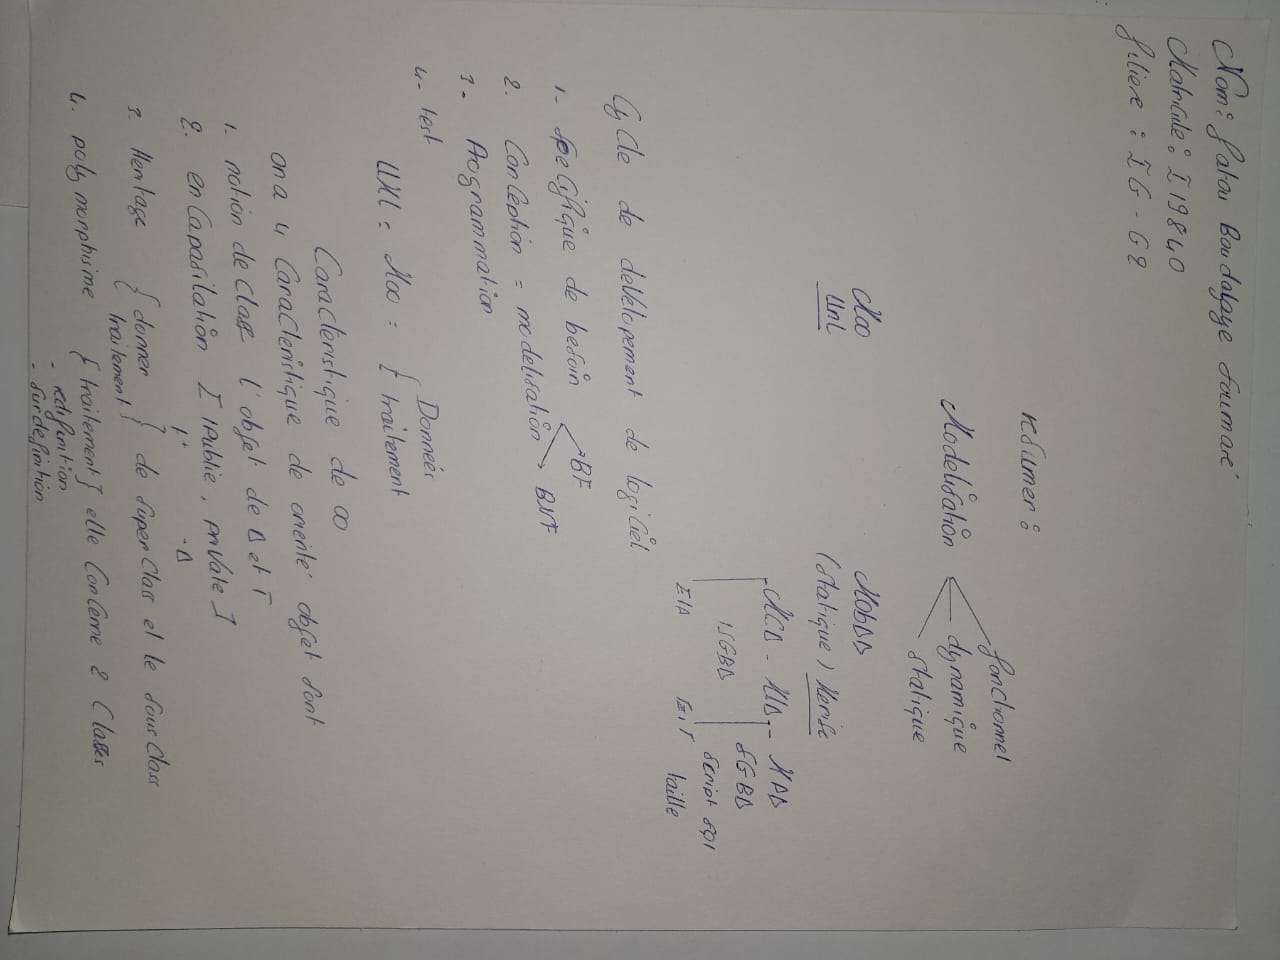 Nom: fatou Boudalaye Soumaré
Matricule: I19840
filiere : IG - G2
résumer :
Modelisation
fonctionnel
dynamique
statique
Moo
UML
MobDD
(statique) Merise
MCD - MLD - MPD
SGBD
SGBD
script sql
taille
Cycle de developement de logiciel
1- specifique de besoin
BF
BNF
2. Conception = modelisation
3- Programmation
4- test
UML = Moo = { Données
traitement
Caractèristique de OO
on a 4 Caractèristique de orienté objet sont
1. notion de class l'objet de D et T
2. encapasilation [ public, private ]
D
3. Heritage { donner
traitement } de super class et le sous class
4. polymorphime { traitement } elle Concerne 2 Classes
- redifinition
- surdefinition